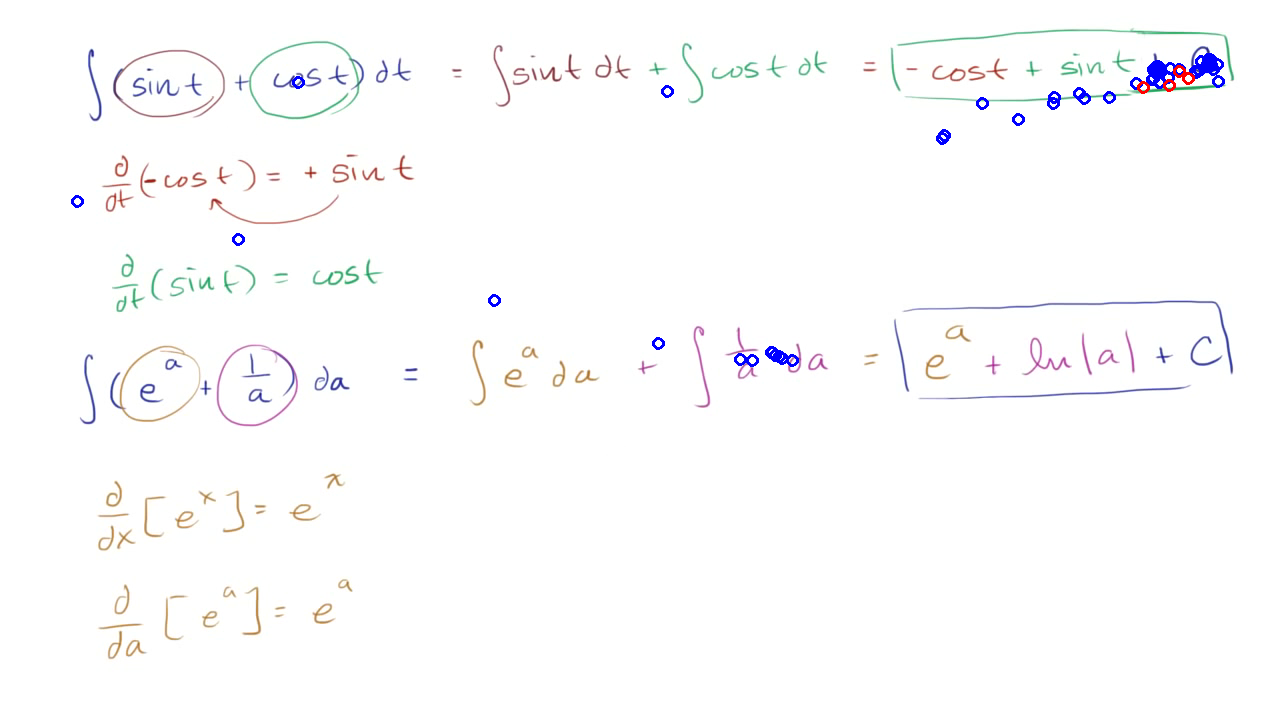 ∫(sin t + cos t) dt = ∫ sin t dt + ∫ cos t dt = - cos t + sin t
d/dt (-cos t) = + sin t
d/dt (sin t) = cos t
∫(e^a + 1/a) da = ∫ e^a da + ∫ 1/a da = e^a + ln|a| + C
d/dx [e^x] = e^x
d/da [e^a] = e^a